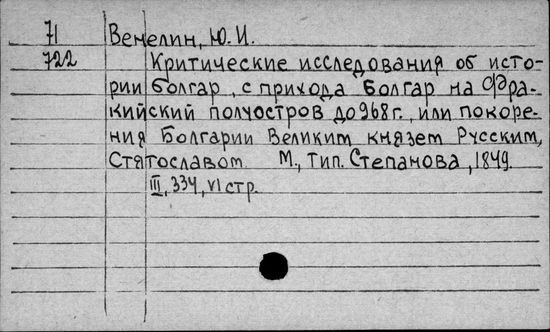 71 Венелин, Ю.И.
722 Критические исследования об исто-
рии болгар, с прихода Болгар на Фра-
кийский полуостров до 968 г., или покоре-
ния Болгарии Великим князем Русским,
Святославом М., тип. Степанова, 1849.
III, 334, VI стр.